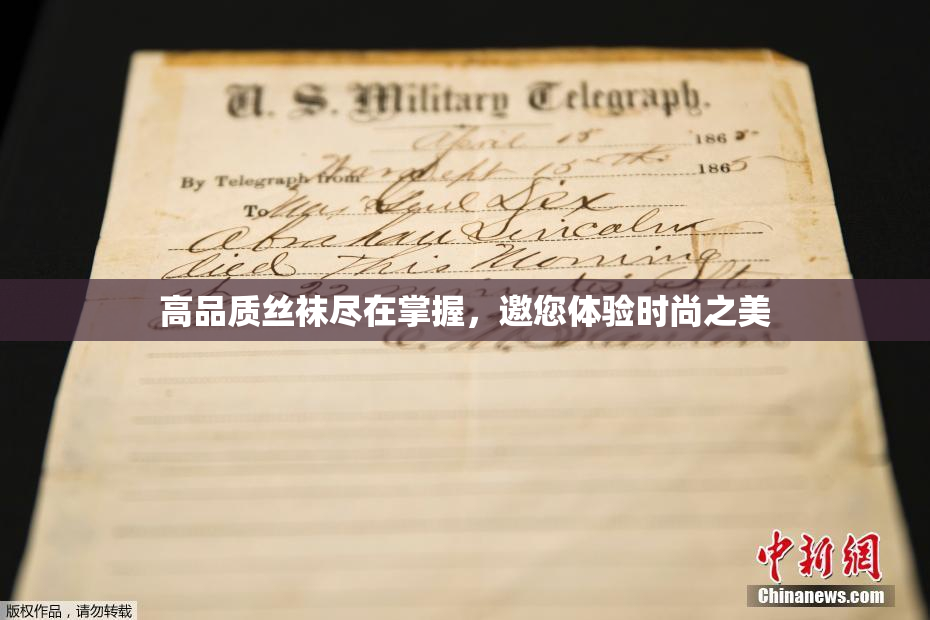 U. S. Military Telegraph.
April 15 1865
By Telegraph from War Dept 15th 1865
To Maj Genl Dix
Abraham Lincoln
died This Morning
at 22 minutes after
高品质丝袜尽在掌握，邀您体验时尚之美
E. M. Stanton
中新网
Chinanews.com
版权作品，请勿转载